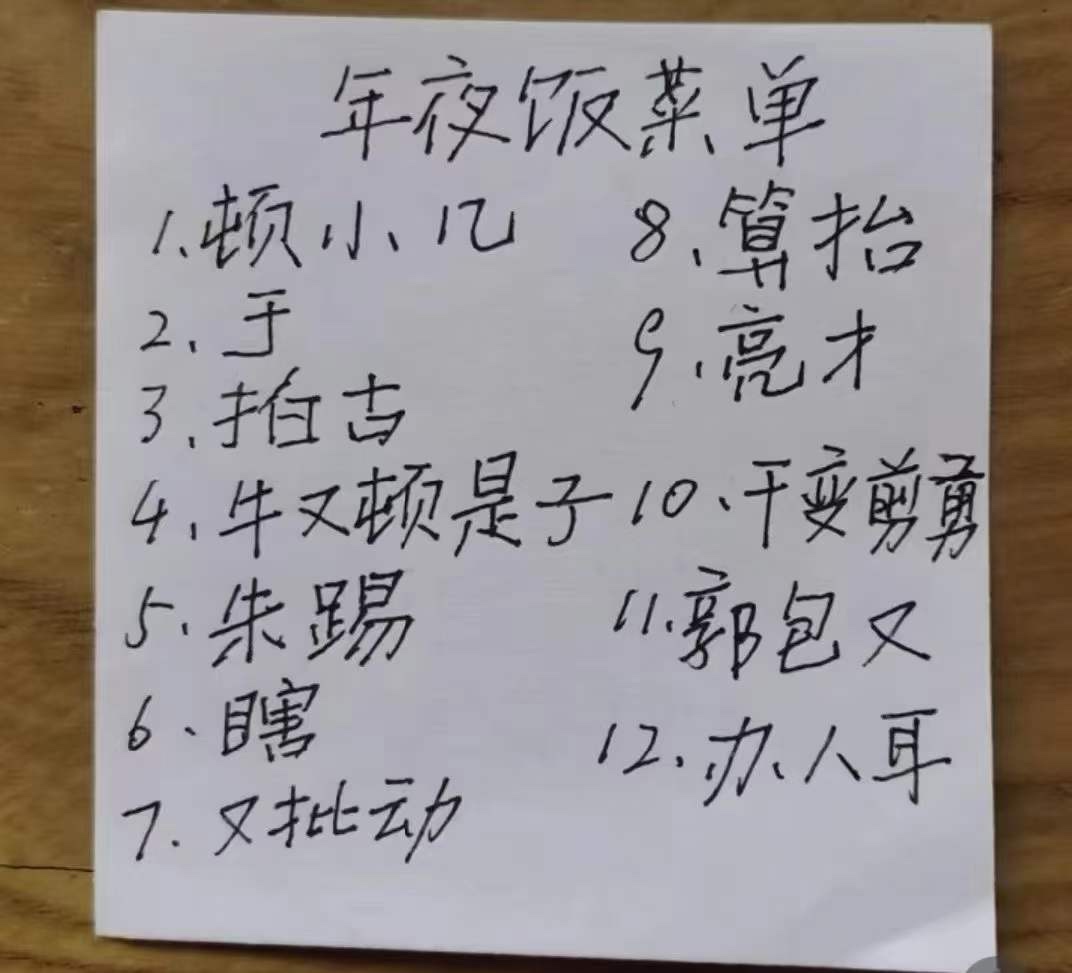 年夜饭菜单
1、顿小几
2、于
3、拍古
4、牛又顿是子
5、朱踢
6、瞎
7、又批动
8、算抬
9、亮才
10、干变剪勇
11、郭包又
12、办人耳